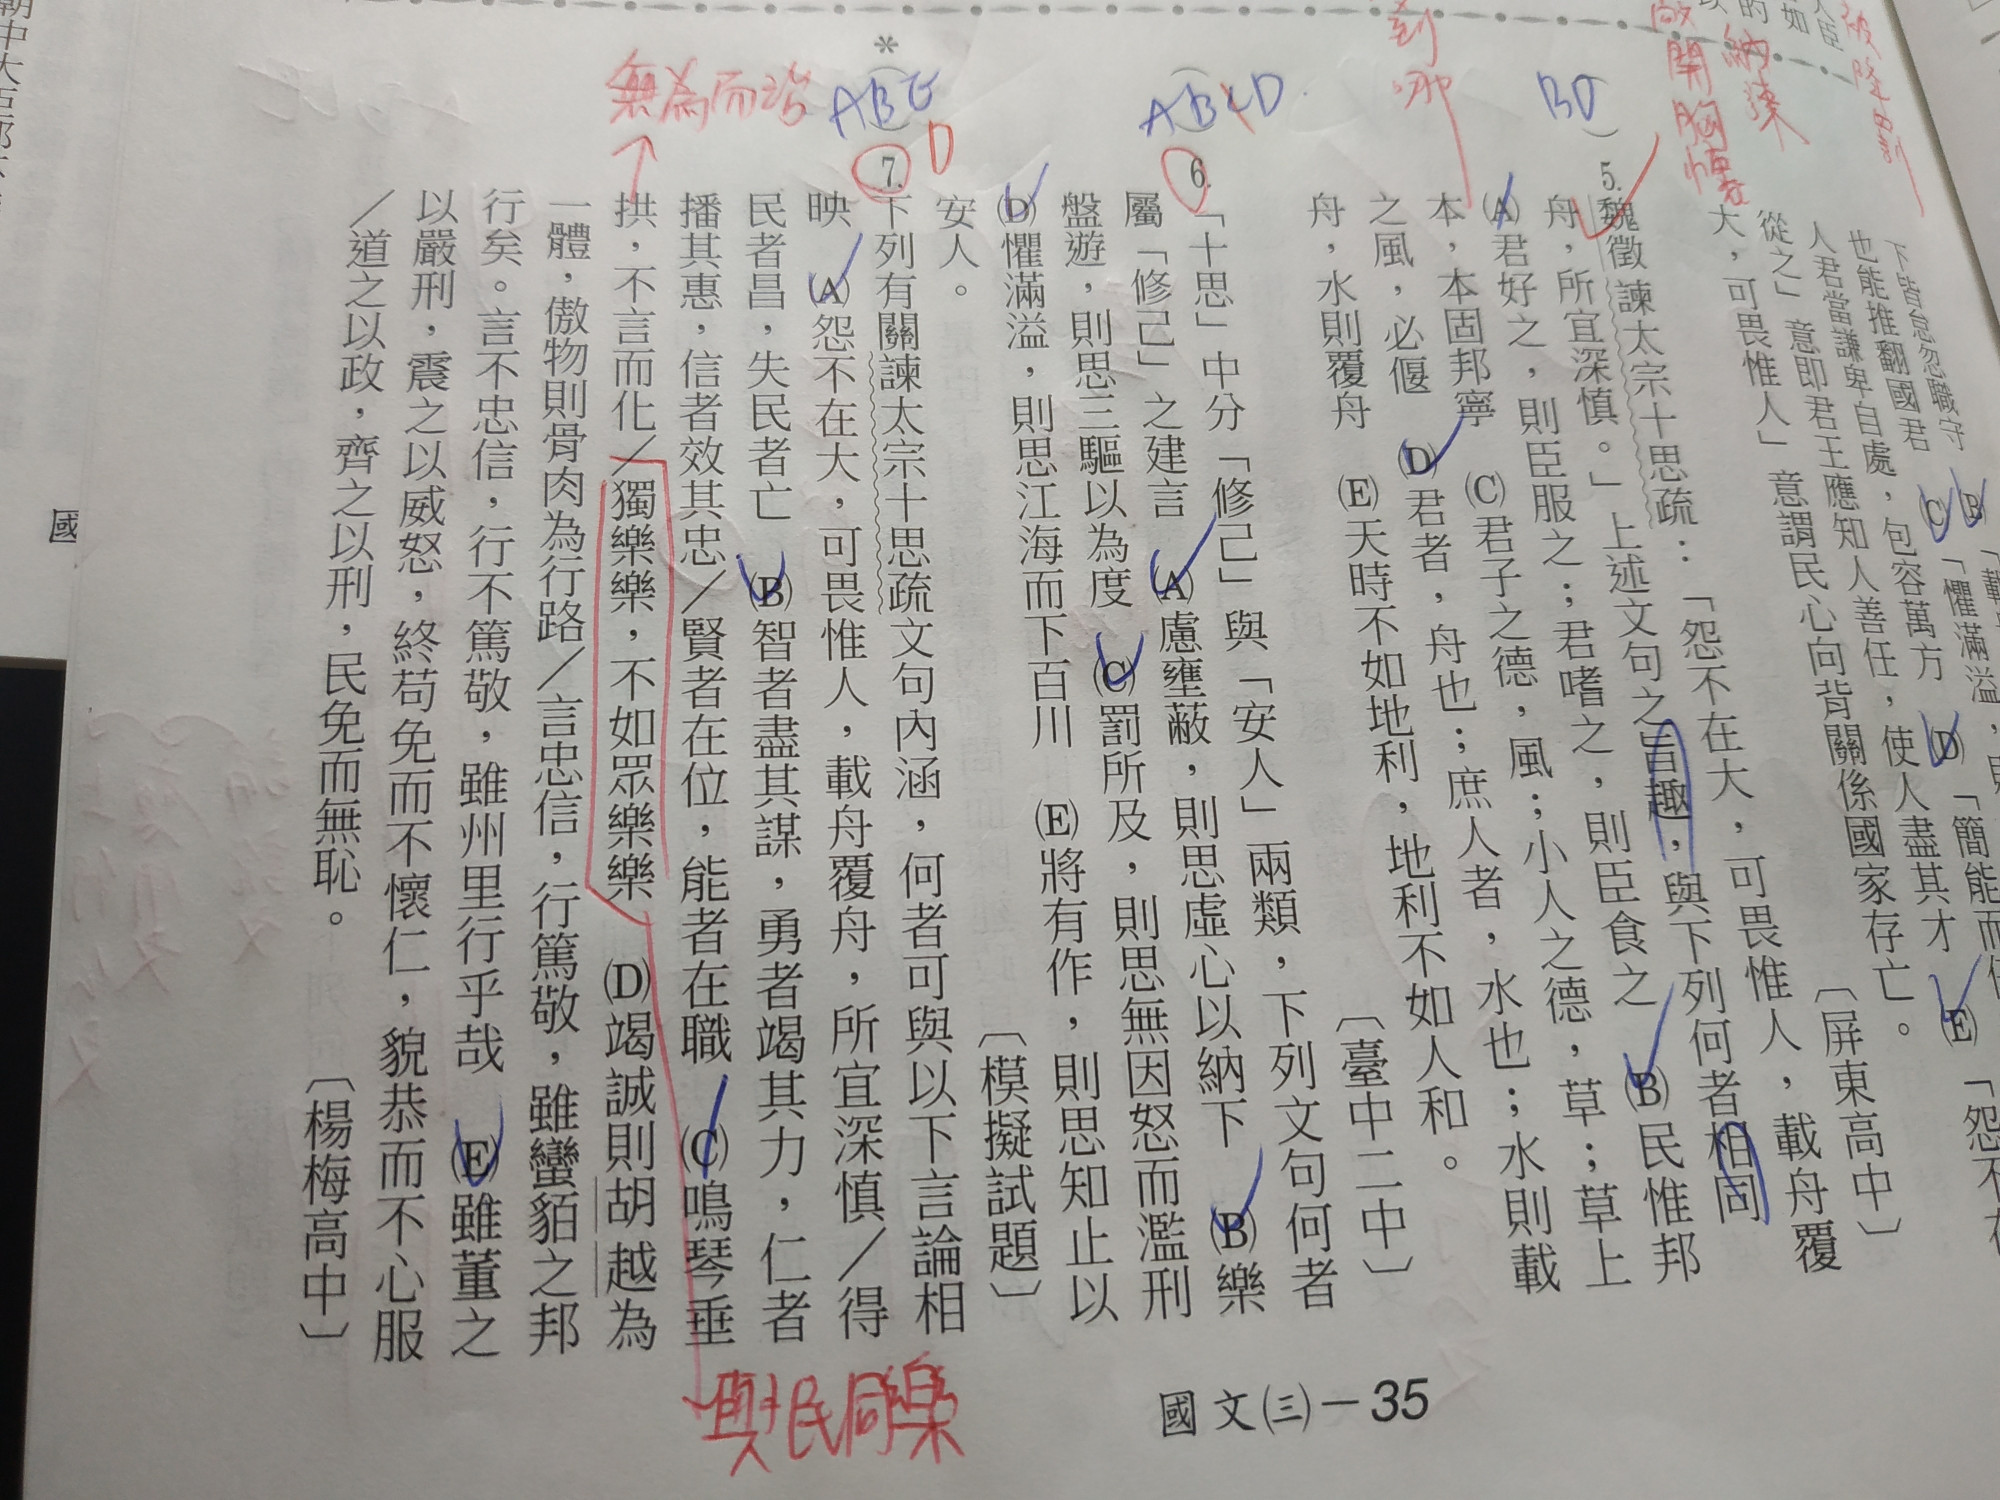 下皆怠忽職守
也能推翻國君
人君當謙卑自處，包容萬方
從之」意即君王應知人善任，使人盡其才
大，可畏惟人」意謂民心向背關係國家存亡。〔屏東高中〕
(B)
(C)「懼滿溢，
(D)「簡能而
(E)「怨不在
納諫
開胸懷
BD
5.魏徵諫太宗十思疏：「怨不在大，可畏惟人，載舟覆
舟，所宜深慎。」上述文句之旨趣，與下列何者相同
(A)君好之，則臣服之；君嗜之，則臣食之 (B)民惟邦
本，本固邦寧 (C)君子之德，風；小人之德，草；草上
之風，必偃 (D)君者，舟也；庶人者，水也；水則載
舟，水則覆舟 (E)天時不如地利，地利不如人和。
〔臺中二中〕
ABCD
6.「十思」中分「修己」與「安人」兩類，下列文句何者
屬「修己」之建言 (A)慮壅蔽，則思虛心以納下 (B)樂
盤遊，則思三驅以為度 (C)罰所及，則思無因怒而濫刑
(D)懼滿溢，則思江海而下百川 (E)將有作，則思知止以
安人。〔模擬試題〕
*
ABE
D
7.下列有關諫太宗十思疏文句內涵，何者可與以下言論相
映 (A)怨不在大，可畏惟人，載舟覆舟，所宜深慎／得
民者昌，失民者亡 (B)智者盡其謀，勇者竭其力，仁者
播其惠，信者效其忠／賢者在位，能者在職 (C)鳴琴垂
拱，不言而化／獨樂樂，不如眾樂樂 (D)竭誠則胡越為
一體，傲物則骨肉為行路／言忠信，行篤敬，雖蠻貊之邦
行矣。言不忠信，行不篤敬，雖州里行乎哉 (E)雖董之
以嚴刑，震之以威怒，終苟免而不懷仁，貌恭而不心服
／道之以政，齊之以刑，民免而無恥。〔楊梅高中〕
無為而治
與民同樂
國文(三)－35
國